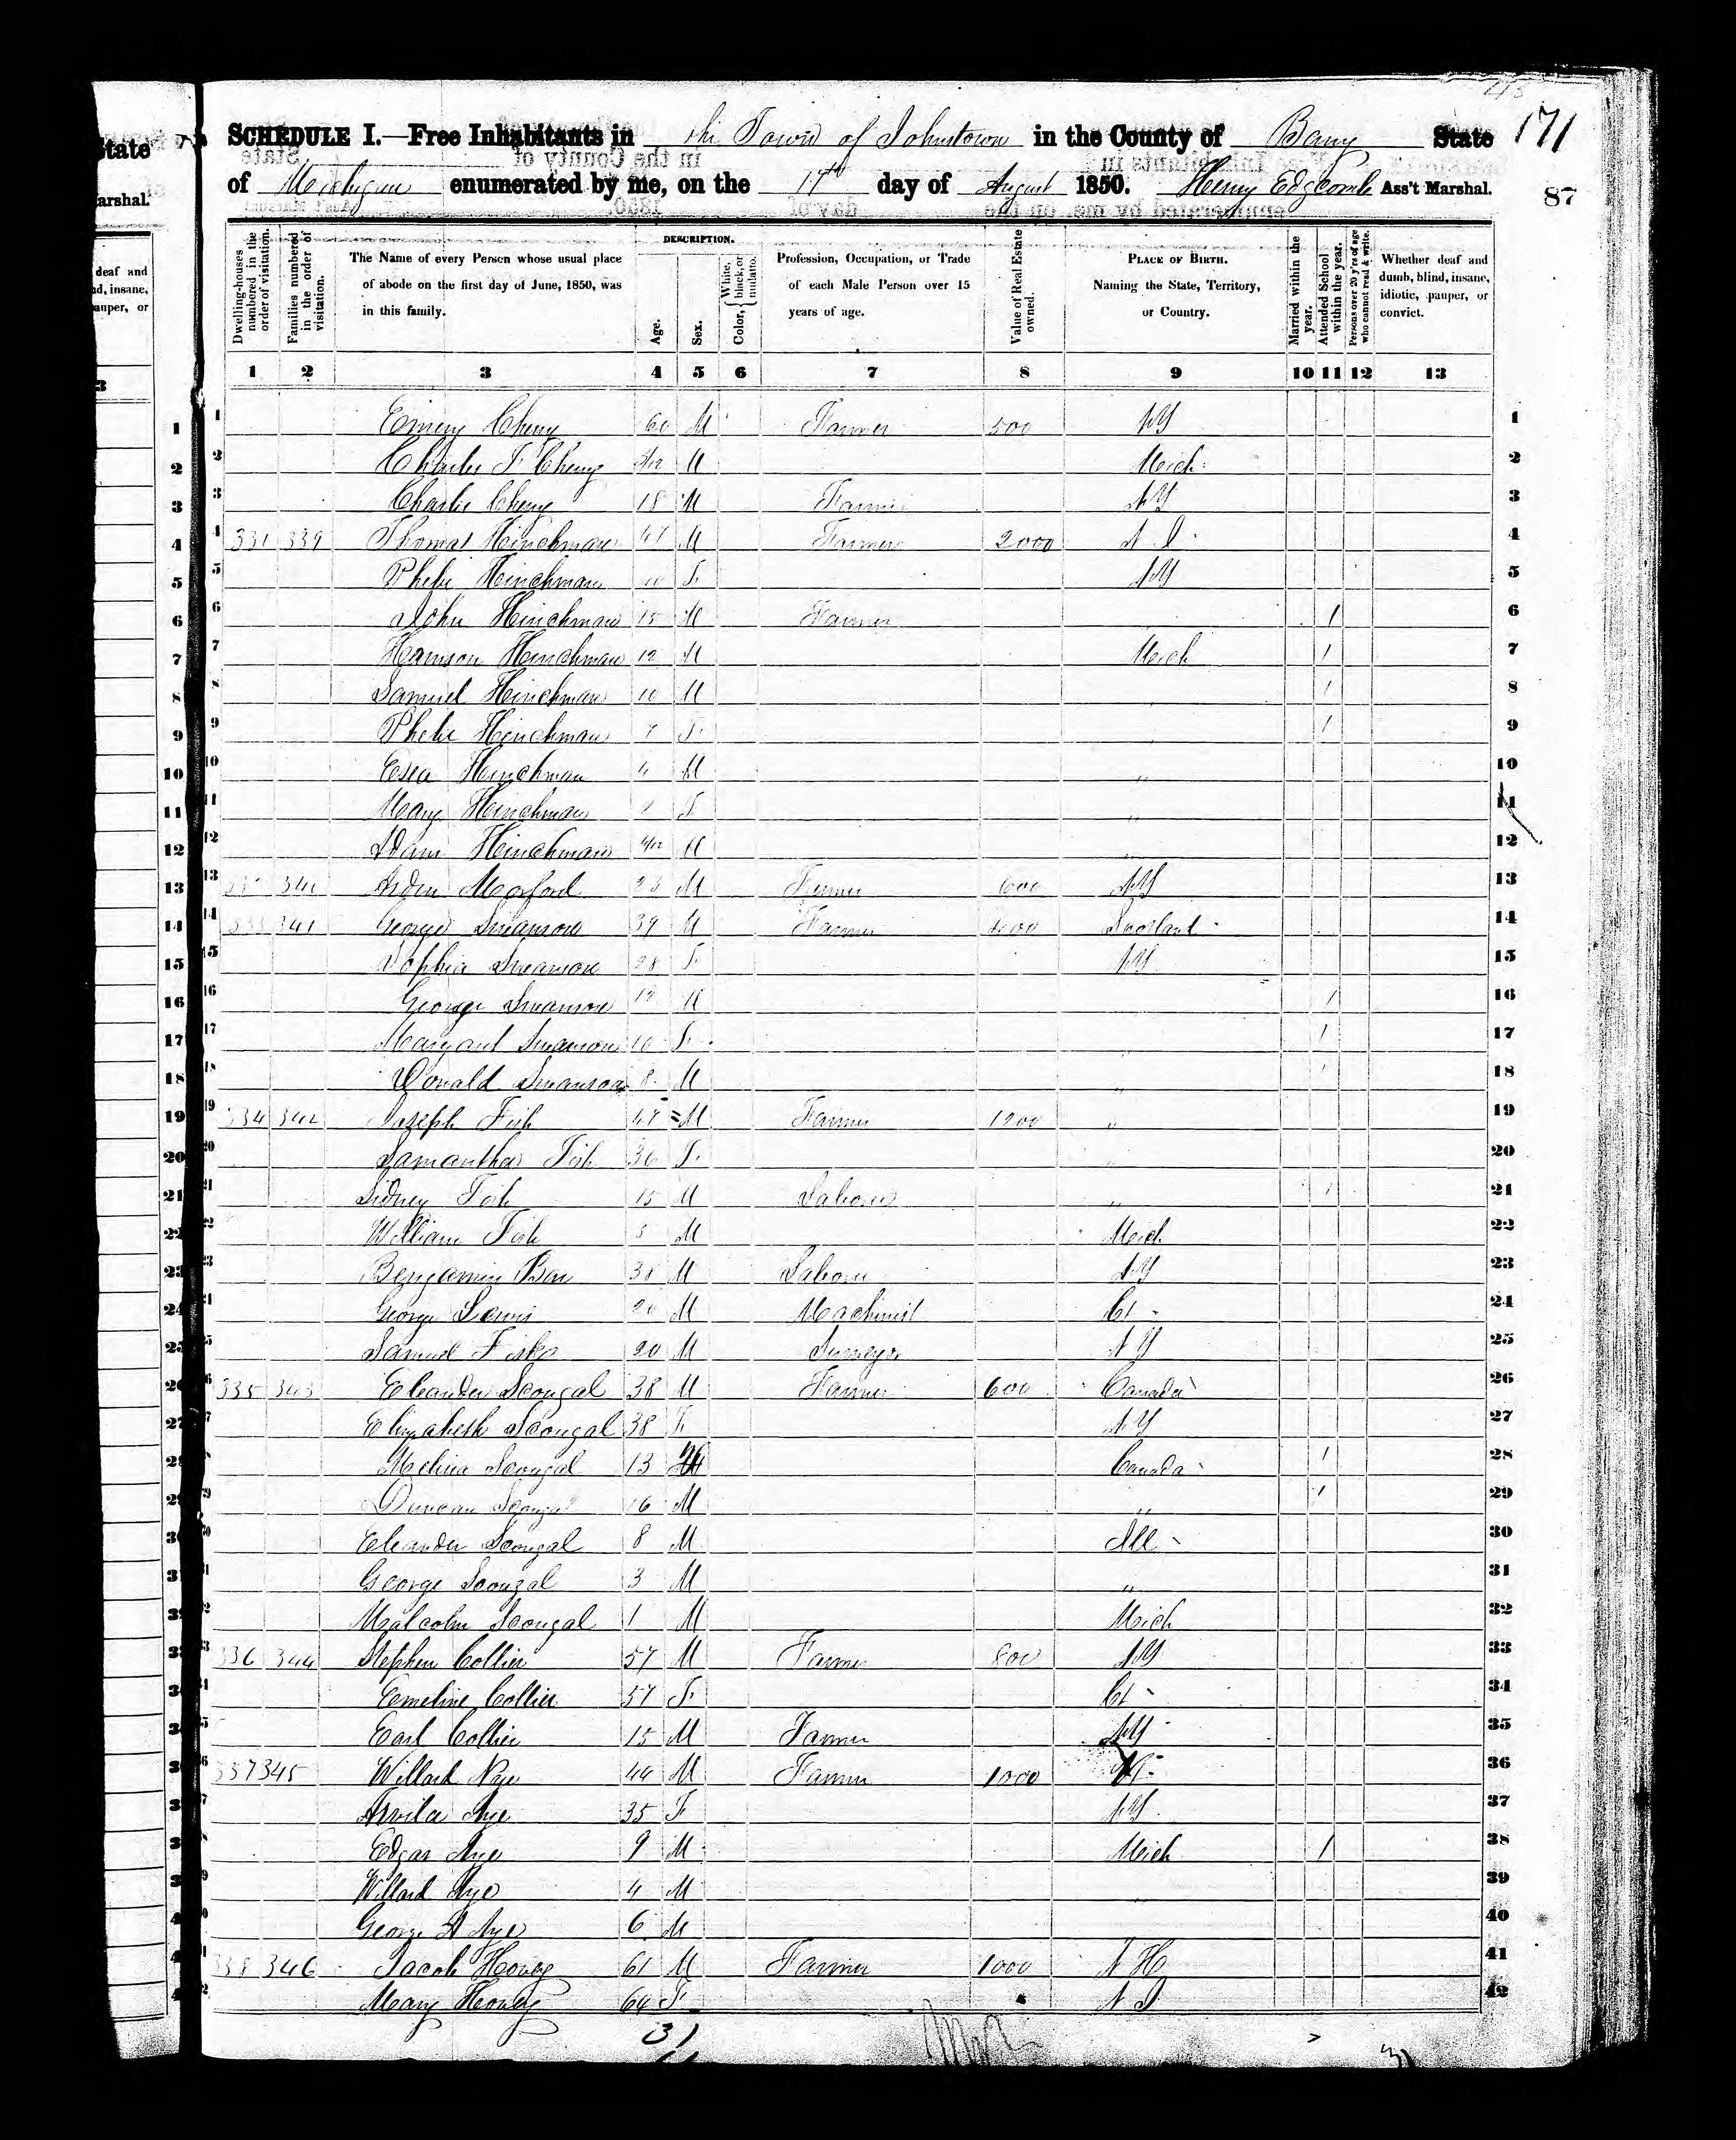 171
SCHEDULE I.—Free Inhabitants in the Town of Johnstown in the County of Barry State
of Michigan enumerated by me, on the 17th day of August 1850. Henry Edgcomb Ass't Marshal.
87
Dwelling-houses numbered in the order of visitation.
Families numbered in the order of visitation.
The Name of every Person whose usual place of abode on the first day of June, 1850, was in this family.
DESCRIPTION.
Age.
Sex.
Color, { White, black, or mulatto.
Profession, Occupation, or Trade of each Male Person over 15 years of age.
Value of Real Estate owned.
PLACE OF BIRTH. Naming the State, Territory, or Country.
Married within the year.
Attended School within the year.
Persons over 20 y'rs of age who cannot read & write.
Whether deaf and dumb, blind, insane, idiotic, pauper, or convict.
1 2 3 4 5 6 7 8 9 10 11 12 13
1 Emery Cheny 60 M Farmer 500 NY 1
2 Charles F Cheny M Mich 2
3 Charles Cheny 18 M Farmer NY 3
4 331 339 Thomas Hinchman 47 M Farmer 2000 N J 4
5 Phebe Hinchman F NY 5
6 John Hinchman 15 M Farmer 1 6
7 Harrison Hinchman 12 M Mich 1 7
8 Samuel Hinchman 10 M 1 8
9 Phebe Hinchman 7 F 1 9
10 Hinchman 4 M " 10
11 Mary Hinchman 1 F " 11
12 Adam Hinchman M " 12
13 340 Morford 23 M Farmer 600 NY 13
14 333 341 George Swanson 39 M Farmer Scotland 14
15 Sophia Swanson 28 F NY 15
16 George Swanson 12 M 1 16
17 Margaret Swanson 10 F " 1 17
18 Donald Swanson 8 M " 1 18
19 334 342 Joseph Fish 47 M Farmer 1200 " 19
20 Samantha Fish 36 F " 20
21 Sidney Fish 15 M Laborer " 1 21
22 William Fish 5 M Mich 22
23 Benjamin 38 M Laborer NY 23
24 George Lewis 20 M Machinist Ct 24
25 Samuel Fisk 20 M Surveyor NY 25
26 335 343 Eleander Scougal 38 M Farmer 600 Canada 26
27 Elizabeth Scougal 38 F NY 27
28 Melina Scougal 13 Canada 1 28
29 Duncan Scougal 16 M " 1 29
30 Eleander Scougal 8 M Ill 30
31 George Scougal 3 M " 31
32 Malcolm Scougal 1 M Mich 32
33 336 344 Stephen Collier 57 M Farmer 800 NY 33
34 Emeline Collier 57 F Ct 34
35 Earl Collier 15 M Farmer NY 35
36 337 345 Willard Nye 44 M Farmer 1000 36
37 Arvila Nye 35 F NY 37
38 Edgar Nye 9 M Mich 1 38
39 Willard Nye 4 M " 39
40 George A Nye 6 M 40
41 338 346 Jacob Hovey 61 M Farmer 1000 N H 41
42 Mary Hovey 64 F N J 42
31